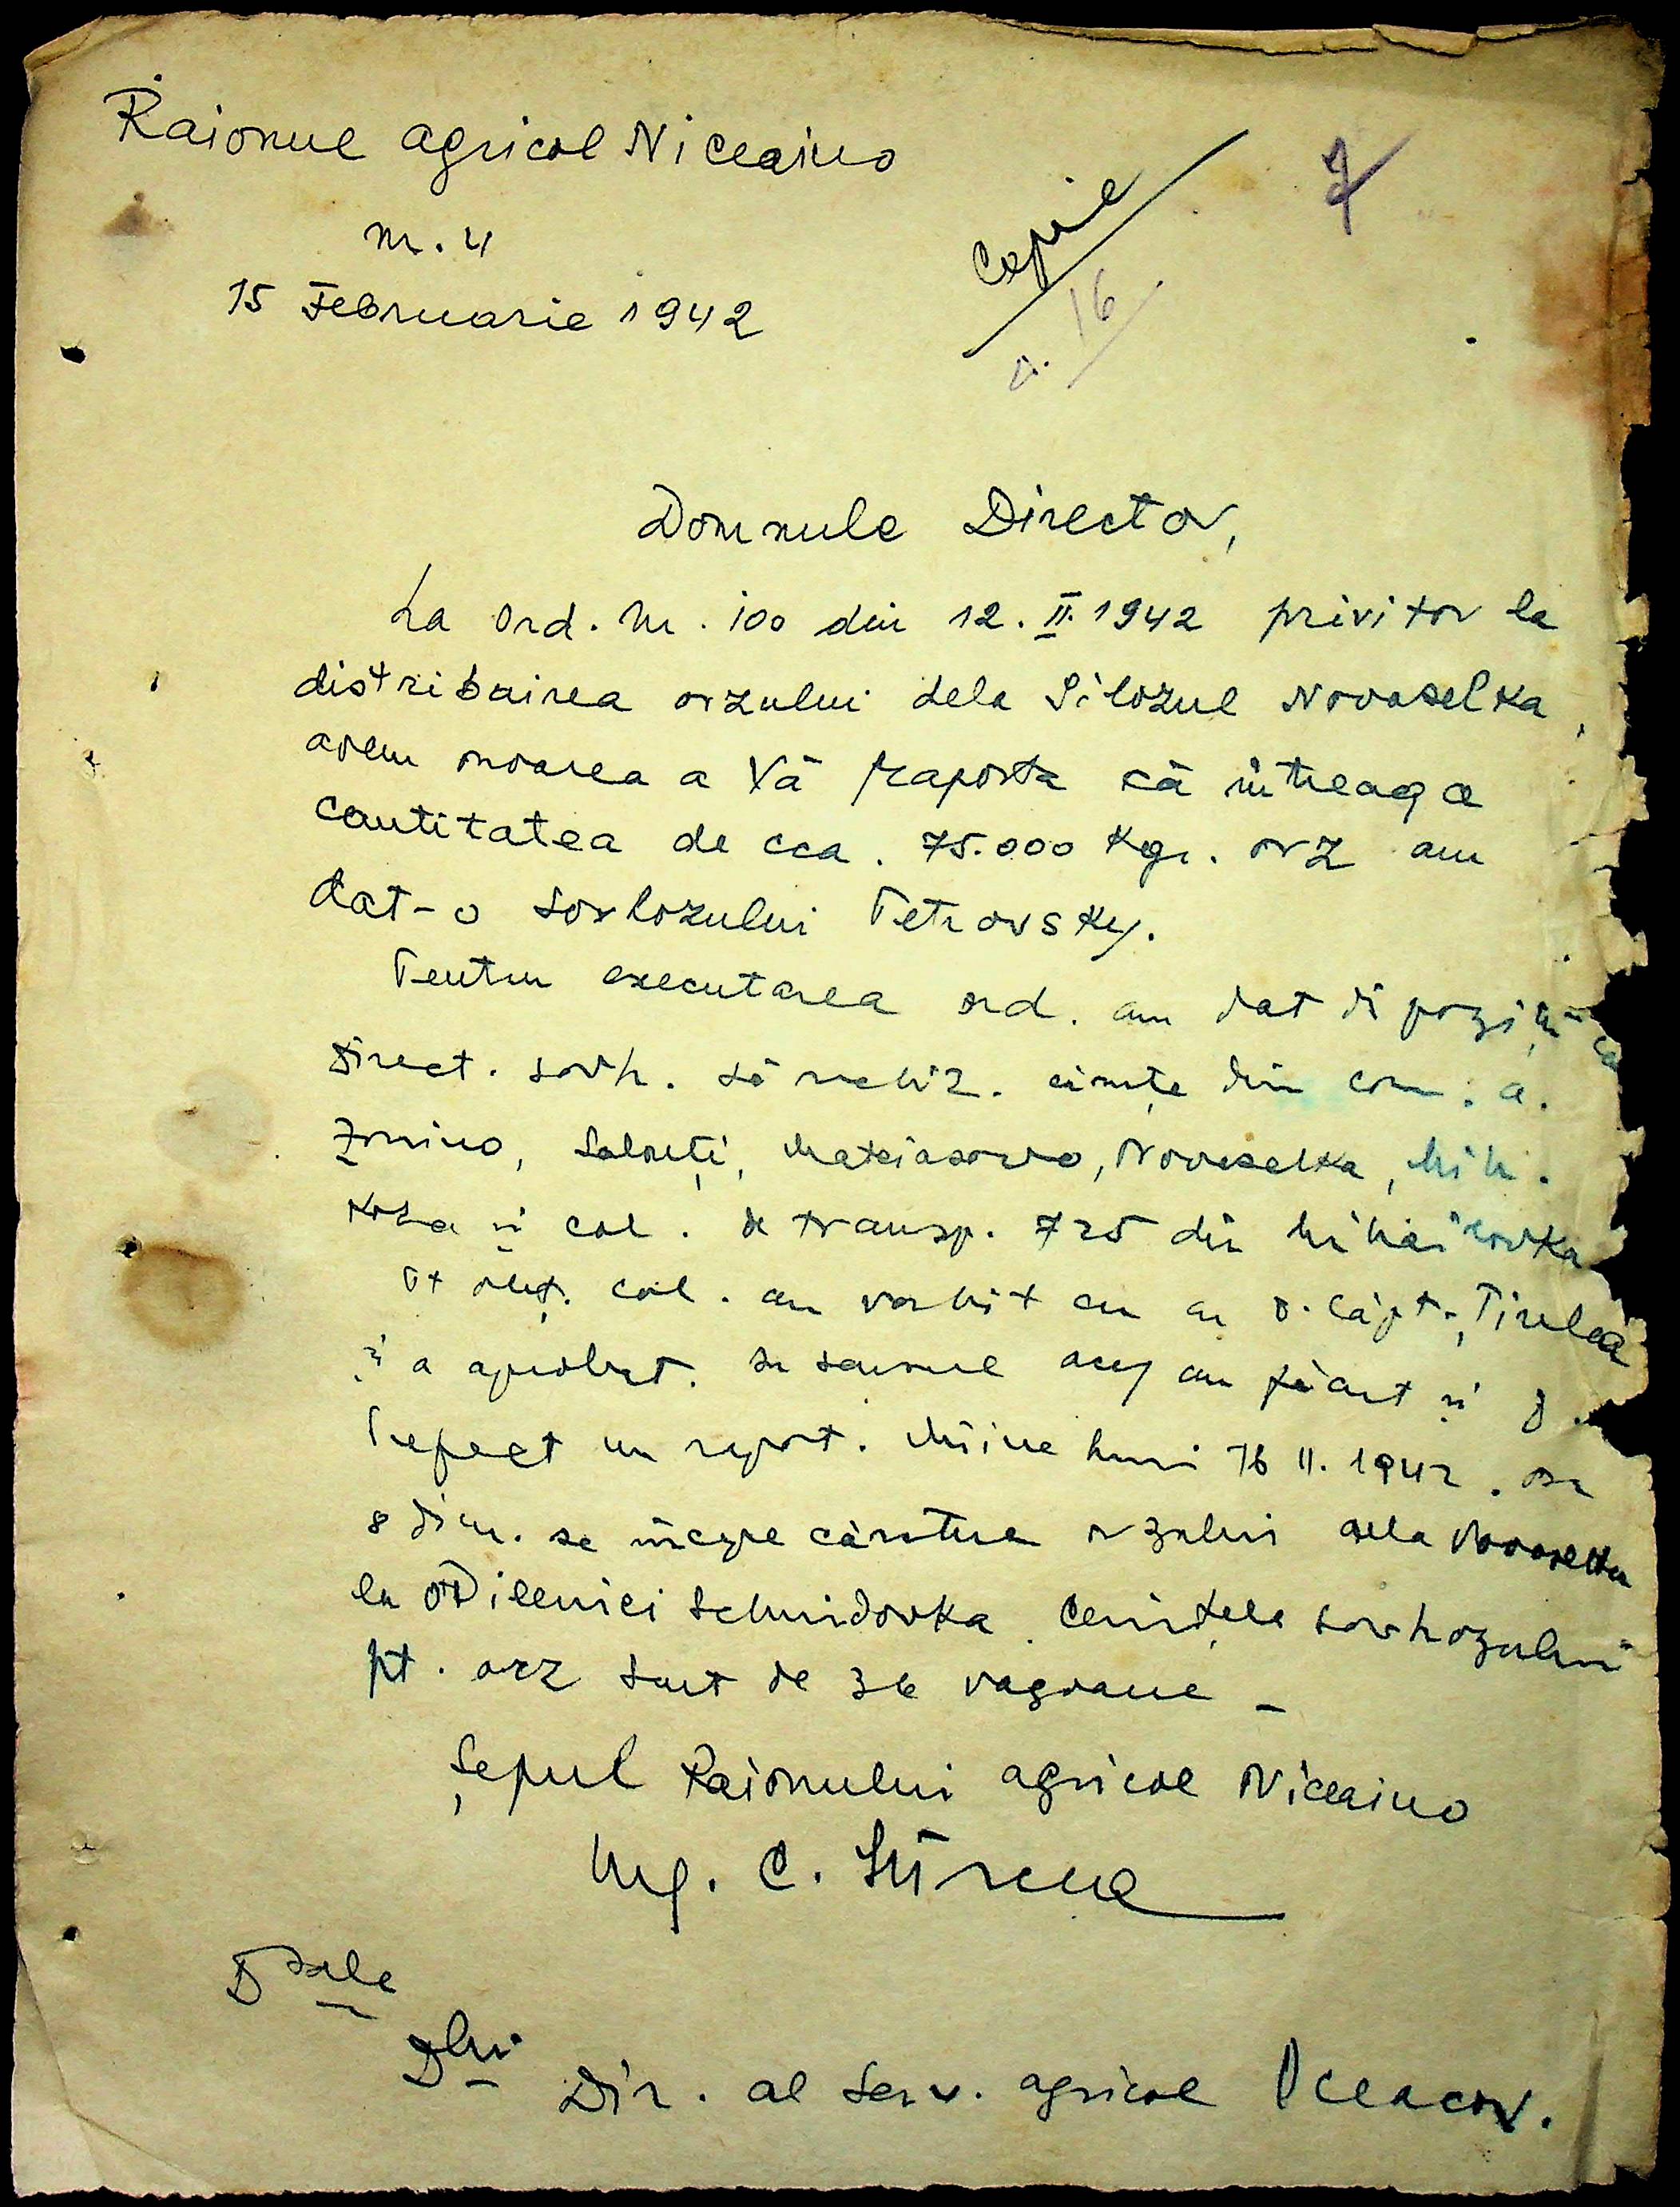 Raionul agricol Niceaino
nr. 4
15 Februarie 1942
Copie
7
16
Domnule Director,
La Ord. Nr. 100 din 12.II.1942 privitor la
distribuirea orzului dela Silozul Novoselka,
avem onoarea a Vă raporta că întreaga
cantitatea de cca. 75.000 Kgr. orz am
dat-o sovhozului Petrovsky.
Pentru executarea ord. am dat dispoziții
Direct. sovh. să din com. a.
Novoselka, Mih.
și col. de transp. 725 din Mihailovka
Pt col. am vorbit cu D. Căpt. Țirulea
și a aprobat. În sensul am făcut și D.
Prefect un raport. Mîine luni 16 II. 1942. ora
8 dim. se începe căratul orzului dela Novoselka
la Schmidovka. Cerințele sovhozului
pt. orz sunt de 36 vagoane -
Șeful Raionului agricol Niceaino
Ing. C.
Dsale
Dlui Dir. al Serv. agricol Oceacov.